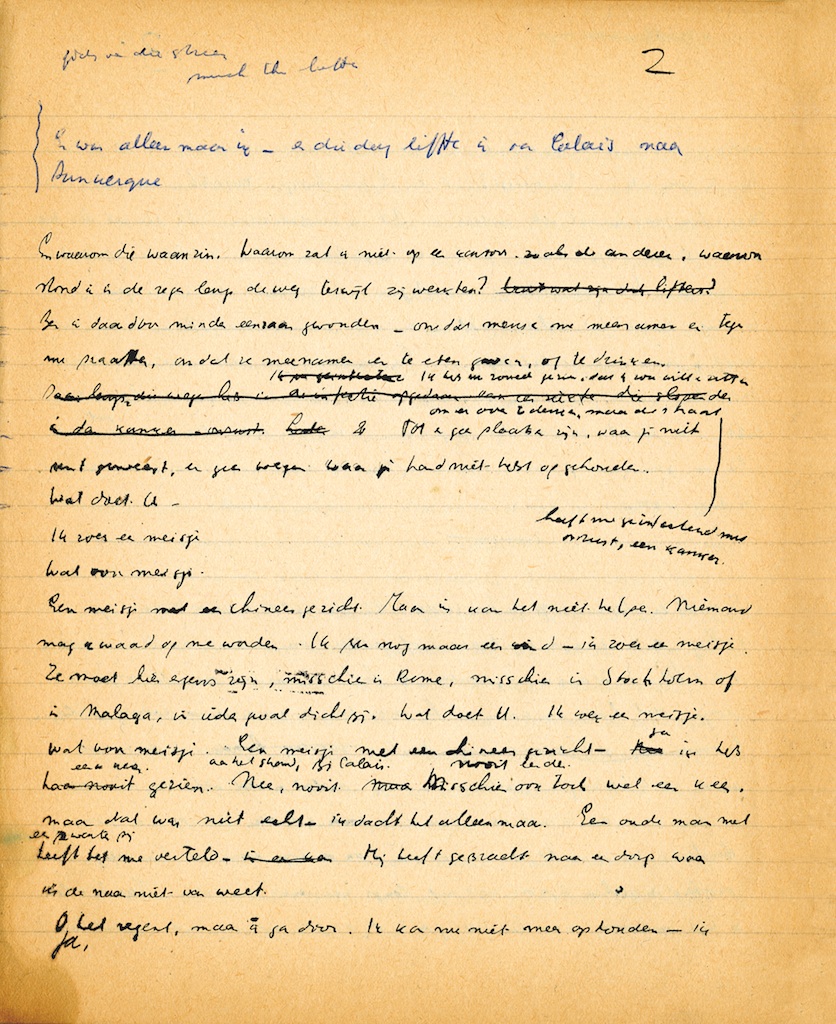 2
Er was alleen maar ik – en die dag liftte ik van Calais naar
Dunkerque
En waarom die waanzin. Waarom zat ik niet op een kantoor zoals de anderen, waarom
stond ik in de regen langs de weg terwijl zij werkten?
Ben ik daardoor minder eenzaam geworden – omdat mensen me meenamen en tegen
me praatten, omdat ze meenamen en te eten gaven, of te drinken.
Ik heb me zoveel
om er over te denken, maar de straat
Tot er geen plaatsen zijn, waar je niet
bent geweest, en geen wegen waar je had niet hebt opgehouden.
heeft me geïnfecteerd met
onrust, een kanker.
Wat doet U –
Ik zoek een meisje
Wat voor meisje.
Een meisje met een chinees gezicht. Maar ik kan het niet helpen. Niemand
mag kwaad op me worden. Ik ben nog maar een kind – ik zoek een meisje.
Ze moet hier ergens zijn, misschien in Rome, misschien in Stockholm of
in Malaga, in ieder geval dichtbij. Wat doet U. Ik zoek een meisje.
Wat voor meisje. Een meisje met een chinees gezicht – ja ik heb
een keer aan het strand, bij Calais.
haar nooit gezien. Nee, nooit. Misschien ook toch wel een keer.
maar dat was niet echt – ik dacht het alleen maar. Een oude man met
heeft het me verteld – Hij heeft gebracht naar een dorp waar
ik de naam niet van weet.
O ja, het regent, maar ik ga door. Ik kan me niet meer ophouden – ik